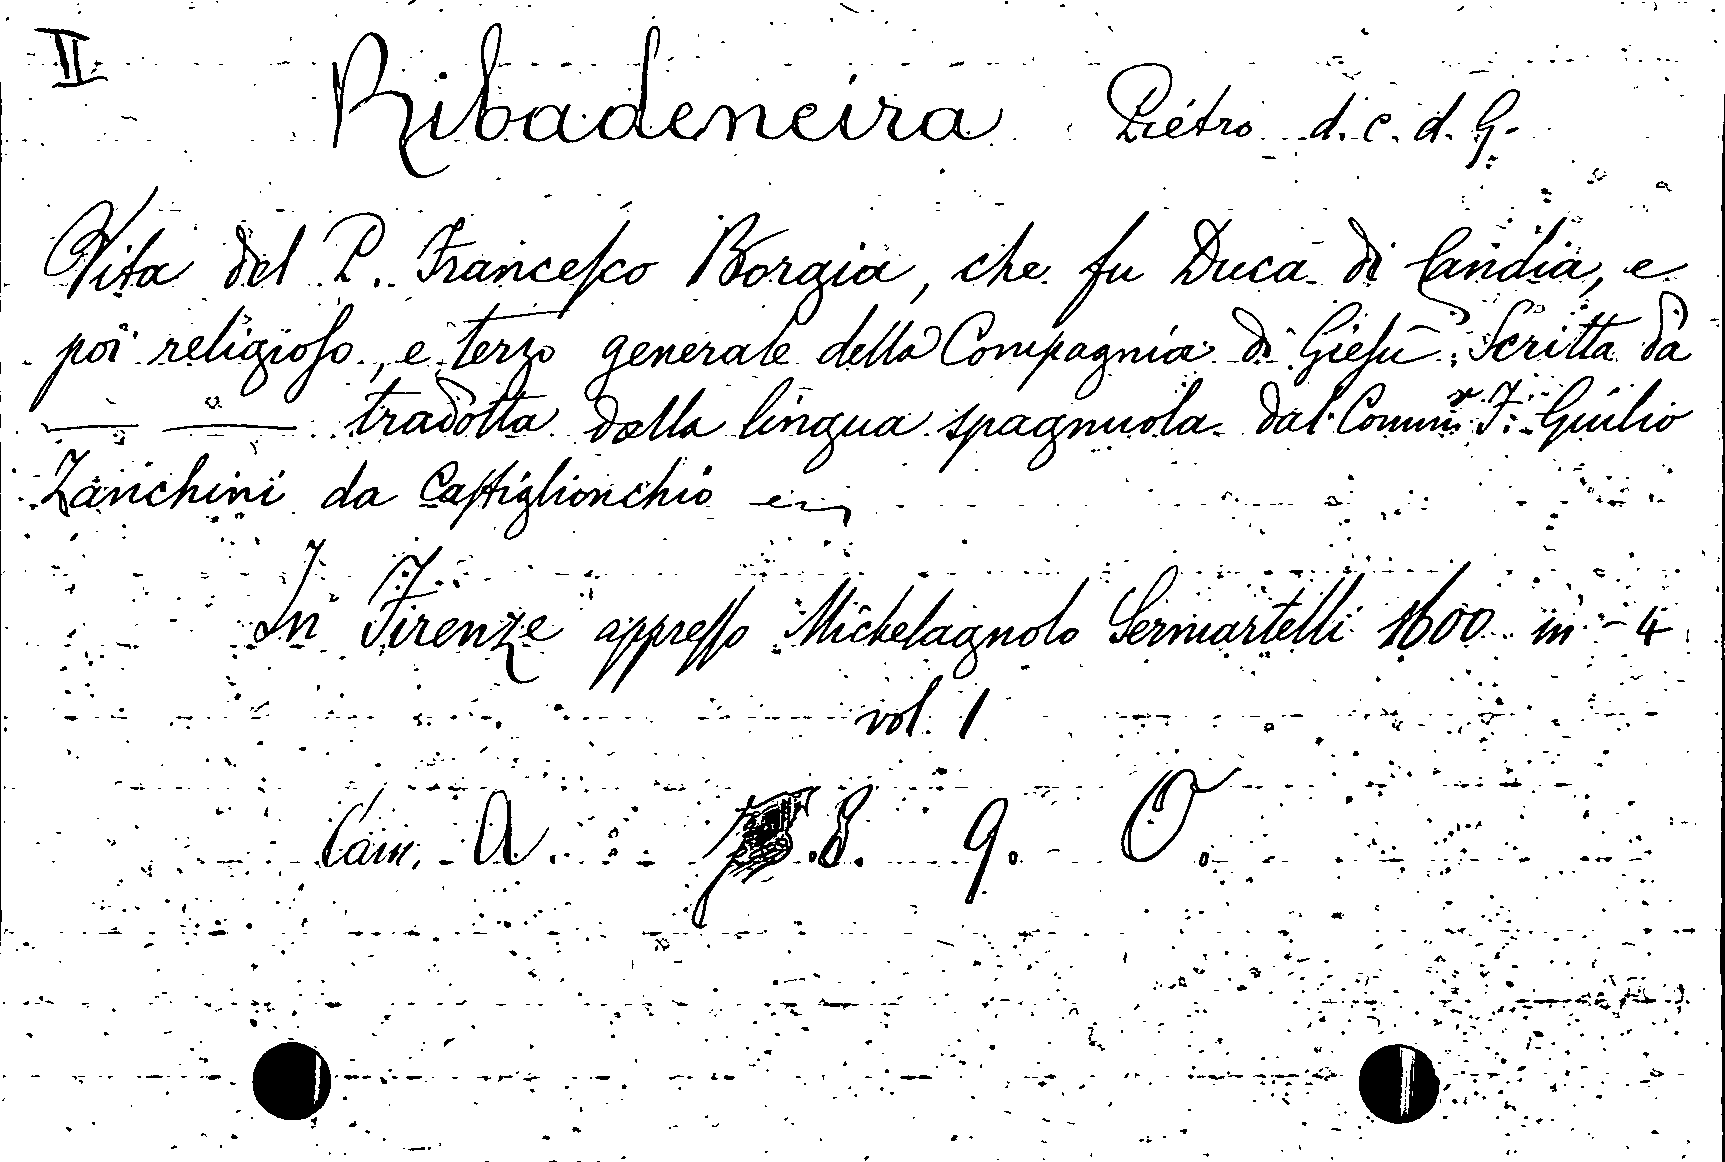 II
Ribadeneira Pietro d. c. d. G.
Vita del P. Francesco Borgia, che fu Duca di Candia, e
poi religioso, e terzo generale della Compagnia di Giesù. Scritta da
—— —— tradotta dalla lingua spagnuola dal Comm.r F. Giulio
Zanchini da Castiglionchio
In Firenze appresso Michelagnolo Sermartelli 1600 in-4
vol. 1
Cam. A. .8. 9. O.